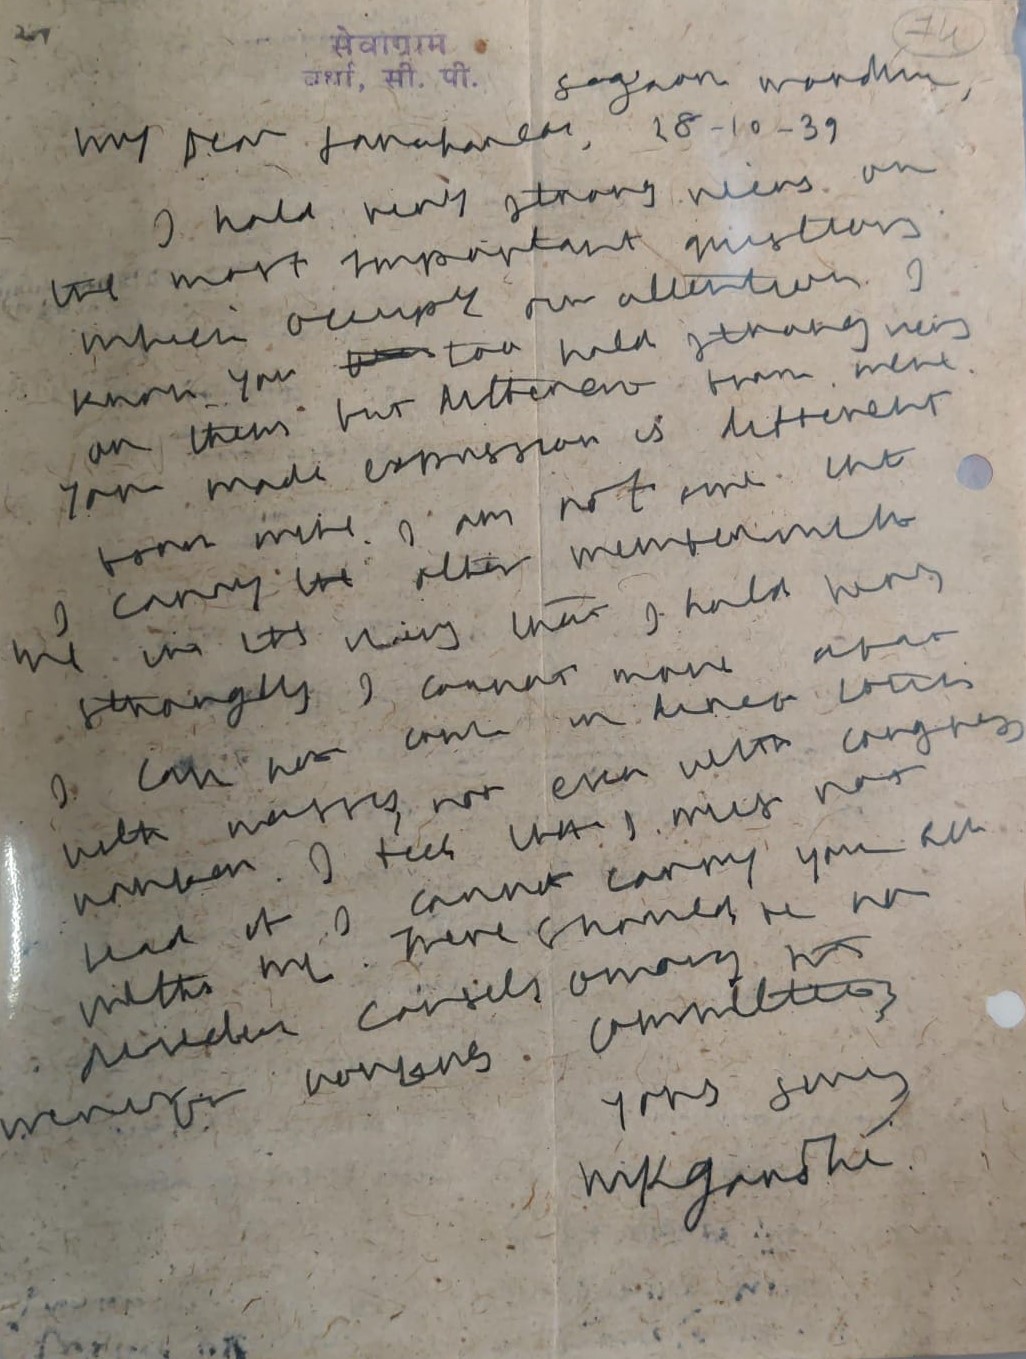 74
सेवाग्राम
वर्धा, सी. पी.
Segaon Wardha,
My Dear Jawaharlal, 28-10-39
I hold very strong views on
the most important questions
which occupy our attention. I
know you too hold strong views
on them but different from mine.
Your mode expression is different
from mine. I am not sure that
I carry the other members with
me in the views that I hold very
strongly. I cannot move about
I can not come in direct touch
with masses, not even with congress
workers. I feel that I must not
lead if I cannot carry you all
with me. There should be no
divided counsels among the
members working committee
Yours
MKGandhi.